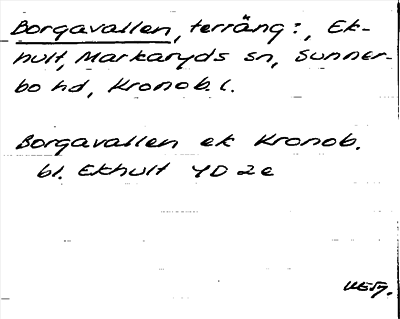 Borgavallen, terräng:, Ek-
hult, Markaryds sn, Sunner-
bo hd, Kronob. l.
Borgavallen ek Kronob.
bl. Ekhult 4D 2e